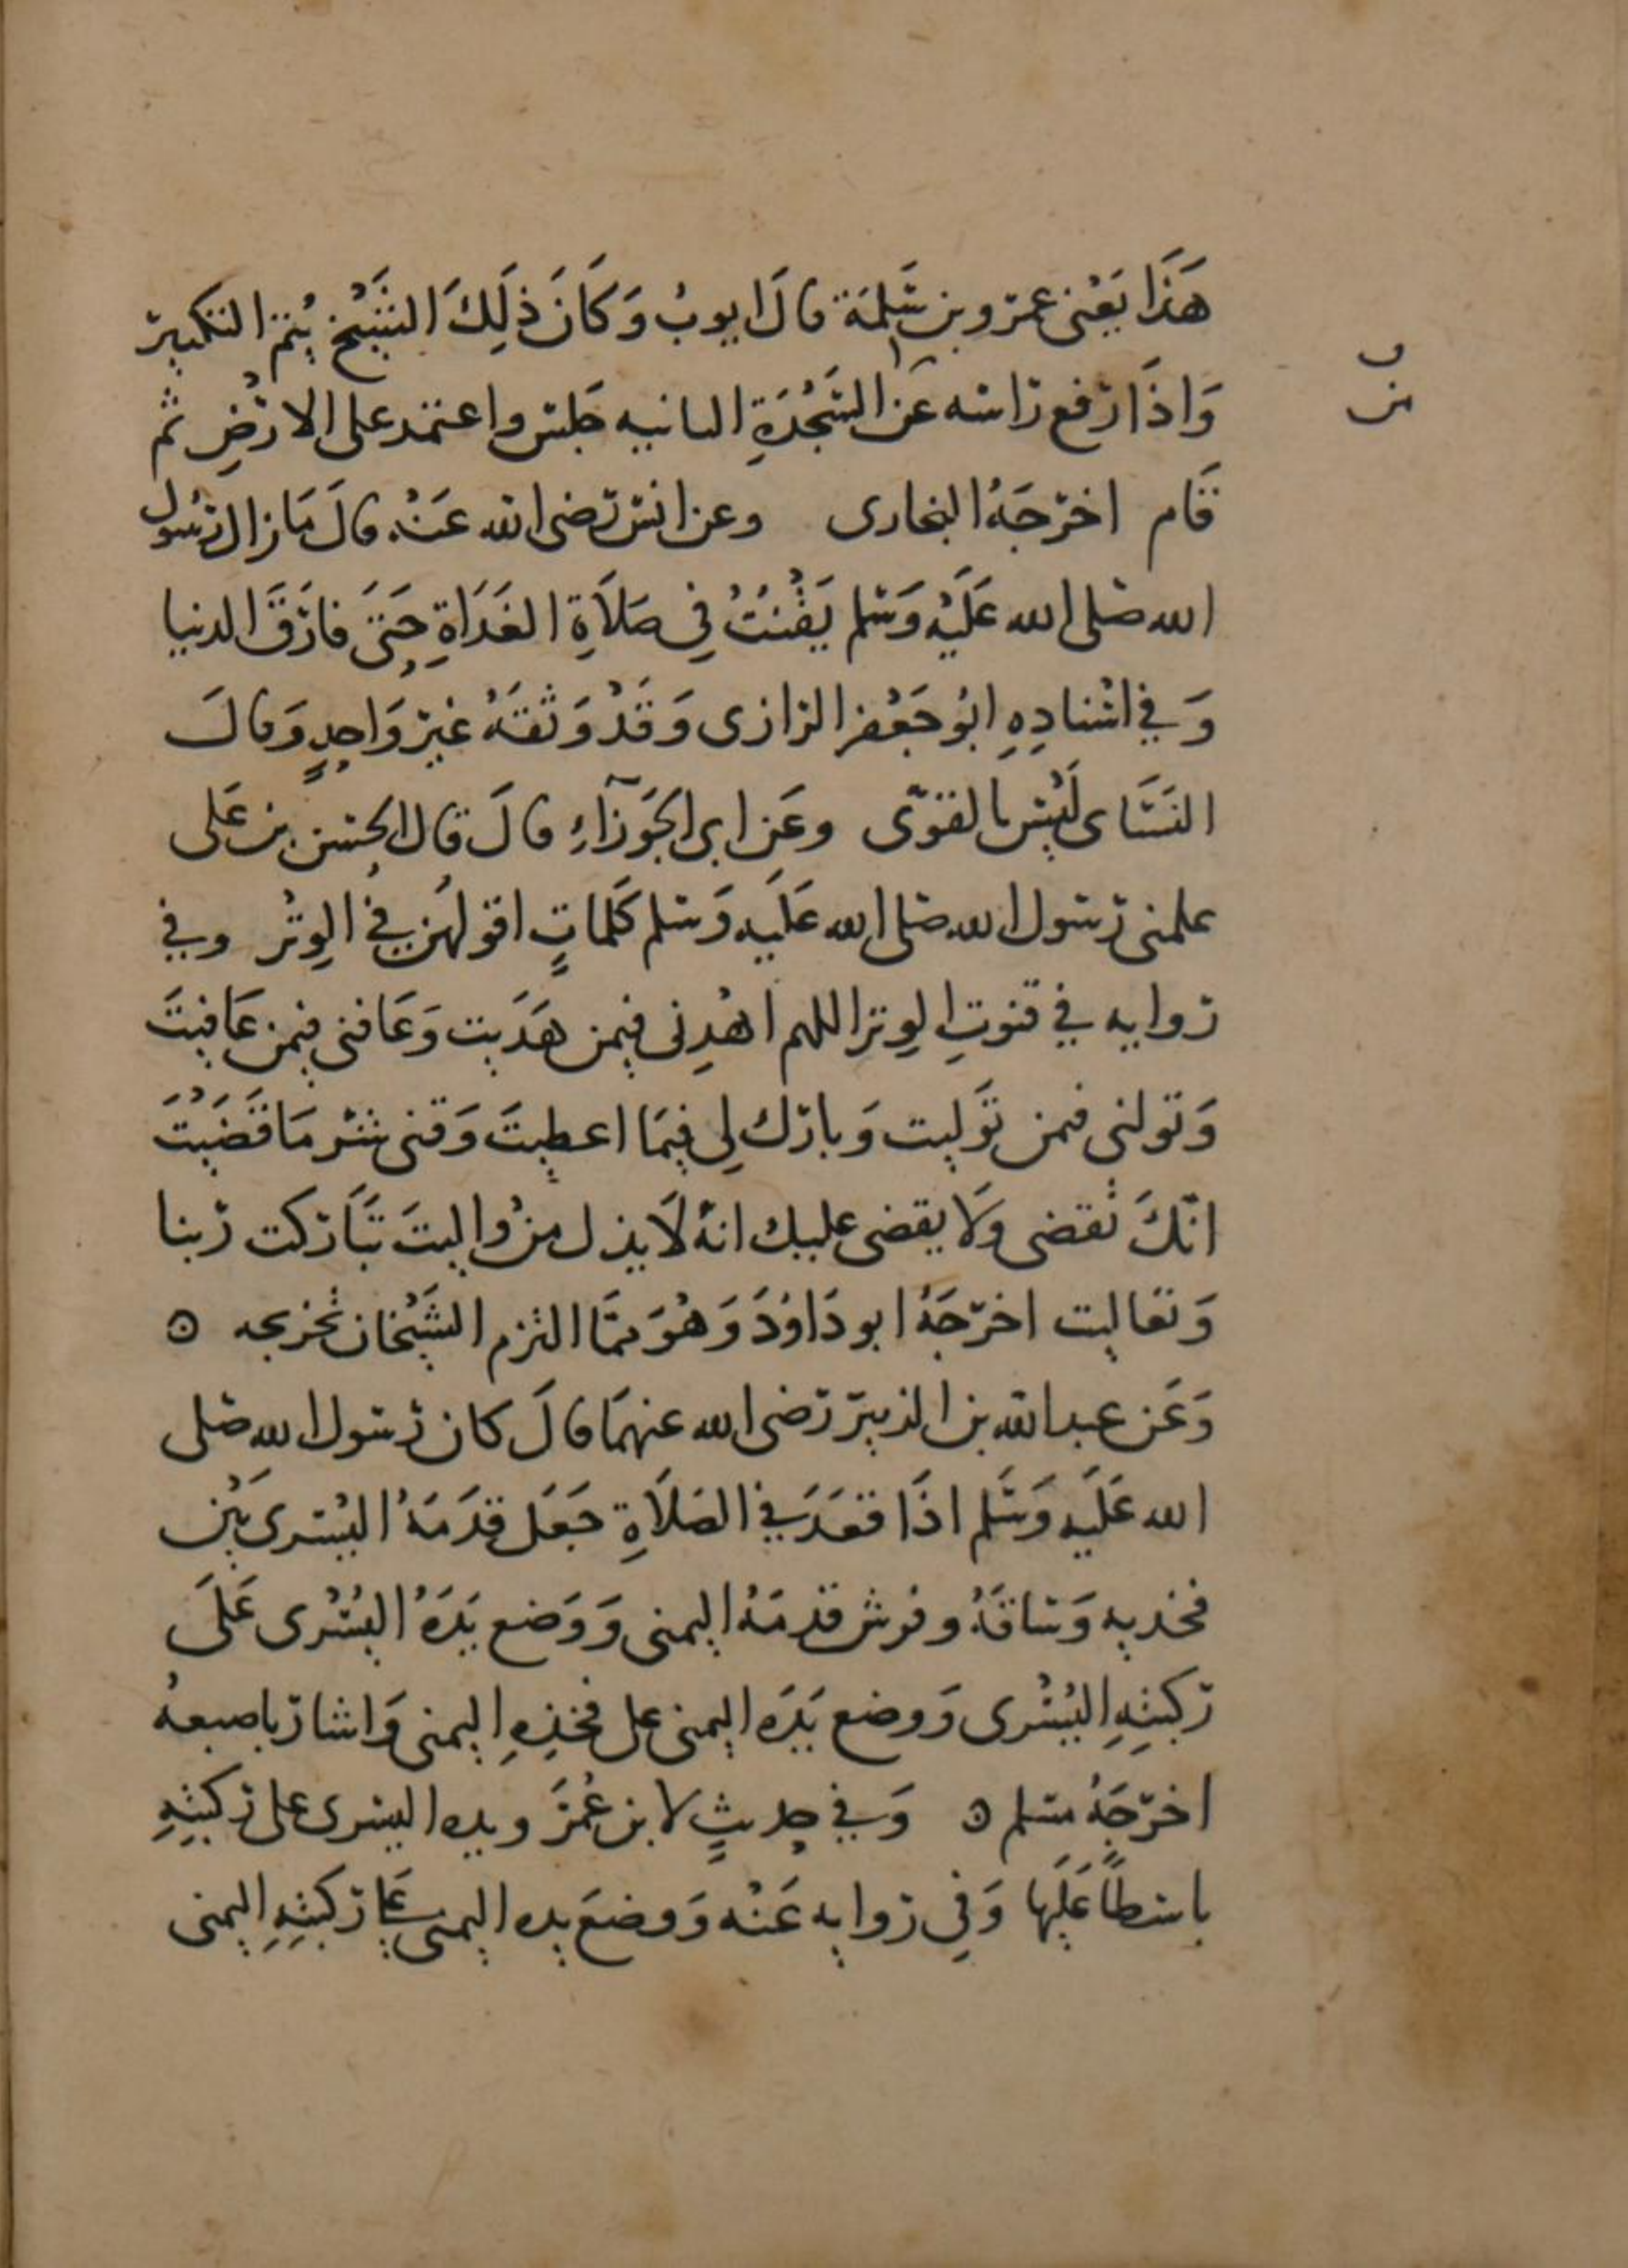 هَذَا يَعْنى عمرو بن سَلِمَة قالَ ايوبُ وَكَانَ ذلِكَ الشَّيْخ يُتم التكبير
وَاذَا رفع راسه عَن السَّجْدَةِ الثانيه جَلس واعتمد على الارْضِ ثم
قَام اخرَجَهُ البخارى وعن انس رضى الله عَنْه قالَ مَا زال رسُول
الله صَلى الله عَلَيْه وَسَلم يَقْنُتُ فِى صَلَاةِ الغَدَاةِ حَتىَ فارَقَ الدنيا
وَفِي اسْنادِهِ ابُو جَعْفر الرازى وَقَدْ وَثقَهُ غيرُ وَاحِدٍ وَقالَ
النَسَاى لَيْسَ بالقوّى وعَن ابى الجَوزآءِ قالَ قال الحسن بن عَلى
علمنى رسول الله صلى الله عَلَيه وَسَلم كَلماتٍ اقولهُن فِي الوِتْر وفي
روايه في قنوتِ الوِتر اللهم اهْدِنى فيمن هَدَيت وَعَافنى فيمن عَافيتَ
وَتولنى فمن تَوليت وَبارك لِى فيمَا اعطيتَ وَقنى شر مَا قَضَيْتَ
انّكَ تقضى وَلَا يقضى عليك انهُ لَا يذل من وُاليتَ تبَاركت ربنا
وَتعاليت اخرَجَهُ ابو دَاوُدَ وَهُوَ ممّا التزم الشَيْخان تخريجه ⊙
وَعَن عبد الله بن الزبير رَضى الله عنهمَا قالَ كان رَسول الله صلى
الله عَلَيه وَسَلم اذَا قعَدَ فِي الصَلَاةِ جَعَل قدَمَهُ اليُسرى بَيْن
فخديه وَسَاقَهُ وفرش قدمَهُ اليمنى وَوَضع يَدَهُ اليُسْرى عَلَى
ركبتِهِ اليُسْرى وَوضع يَدَه اليمنى على فخذِهِ اليمنى وَاشار باصبعهُ
اخرَجَهُ مسلم ⊙ وَفي حديثٍ لابن عُمَر ويده اليسرى على ركبتِهِ
باسطًا عَلَيها وَفِى روايه عَنْه وَوضعَ يده اليمنى عَلى ركبتِهِ اليمنى